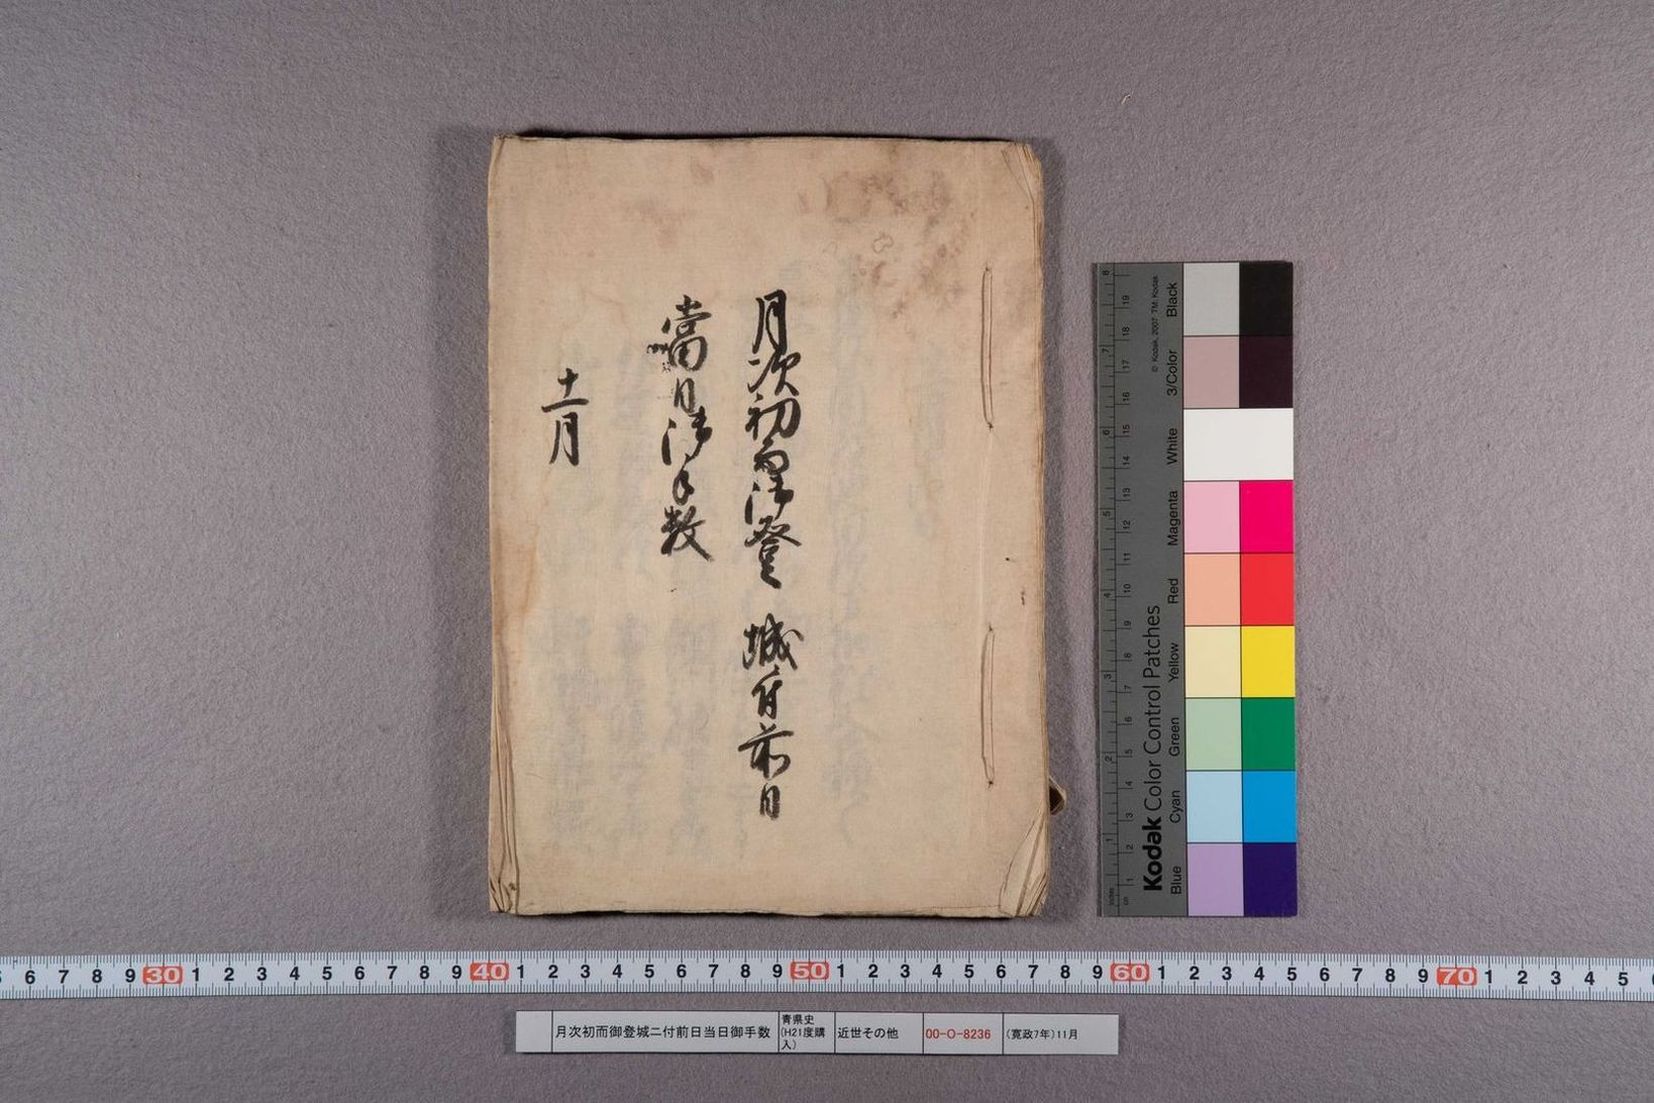 月次初而御登 城ニ付前日
當日御手数
十一月
© Kodak, 2007 TM: Kodak
Kodak Color Control Patches
Blue Cyan Green Yellow Red Magenta White 3/Color Black
inches 1 2 3 4 5 6 7 8
cm 1 2 3 4 5 6 7 8 9 10 11 12 13 14 15 16 17 18 19
6 7 8 9 30 1 2 3 4 5 6 7 8 9 40 1 2 3 4 5 6 7 8 9 50 1 2 3 4 5 6 7 8 9 60 1 2 3 4 5 6 7 8 9 70 1 2 3 4 5
月次初而御登城ニ付前日当日御手数
青県史
(H21度購
入)
近世その他
00-O-8236
(寛政7年)11月